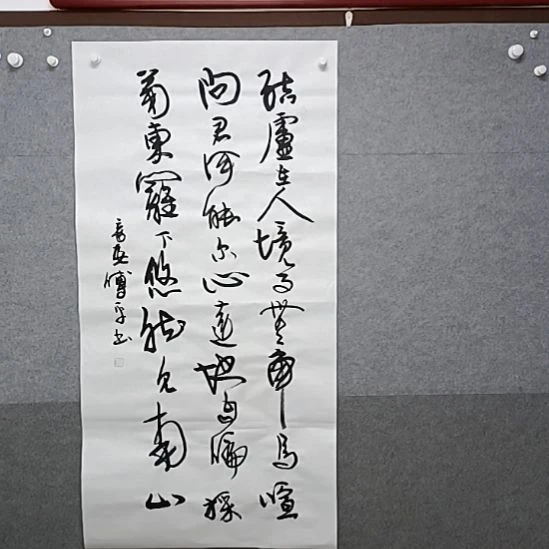 結廬在人境而無車馬喧
問君何能尔心遠地自偏採
菊東籬下悠然見南山